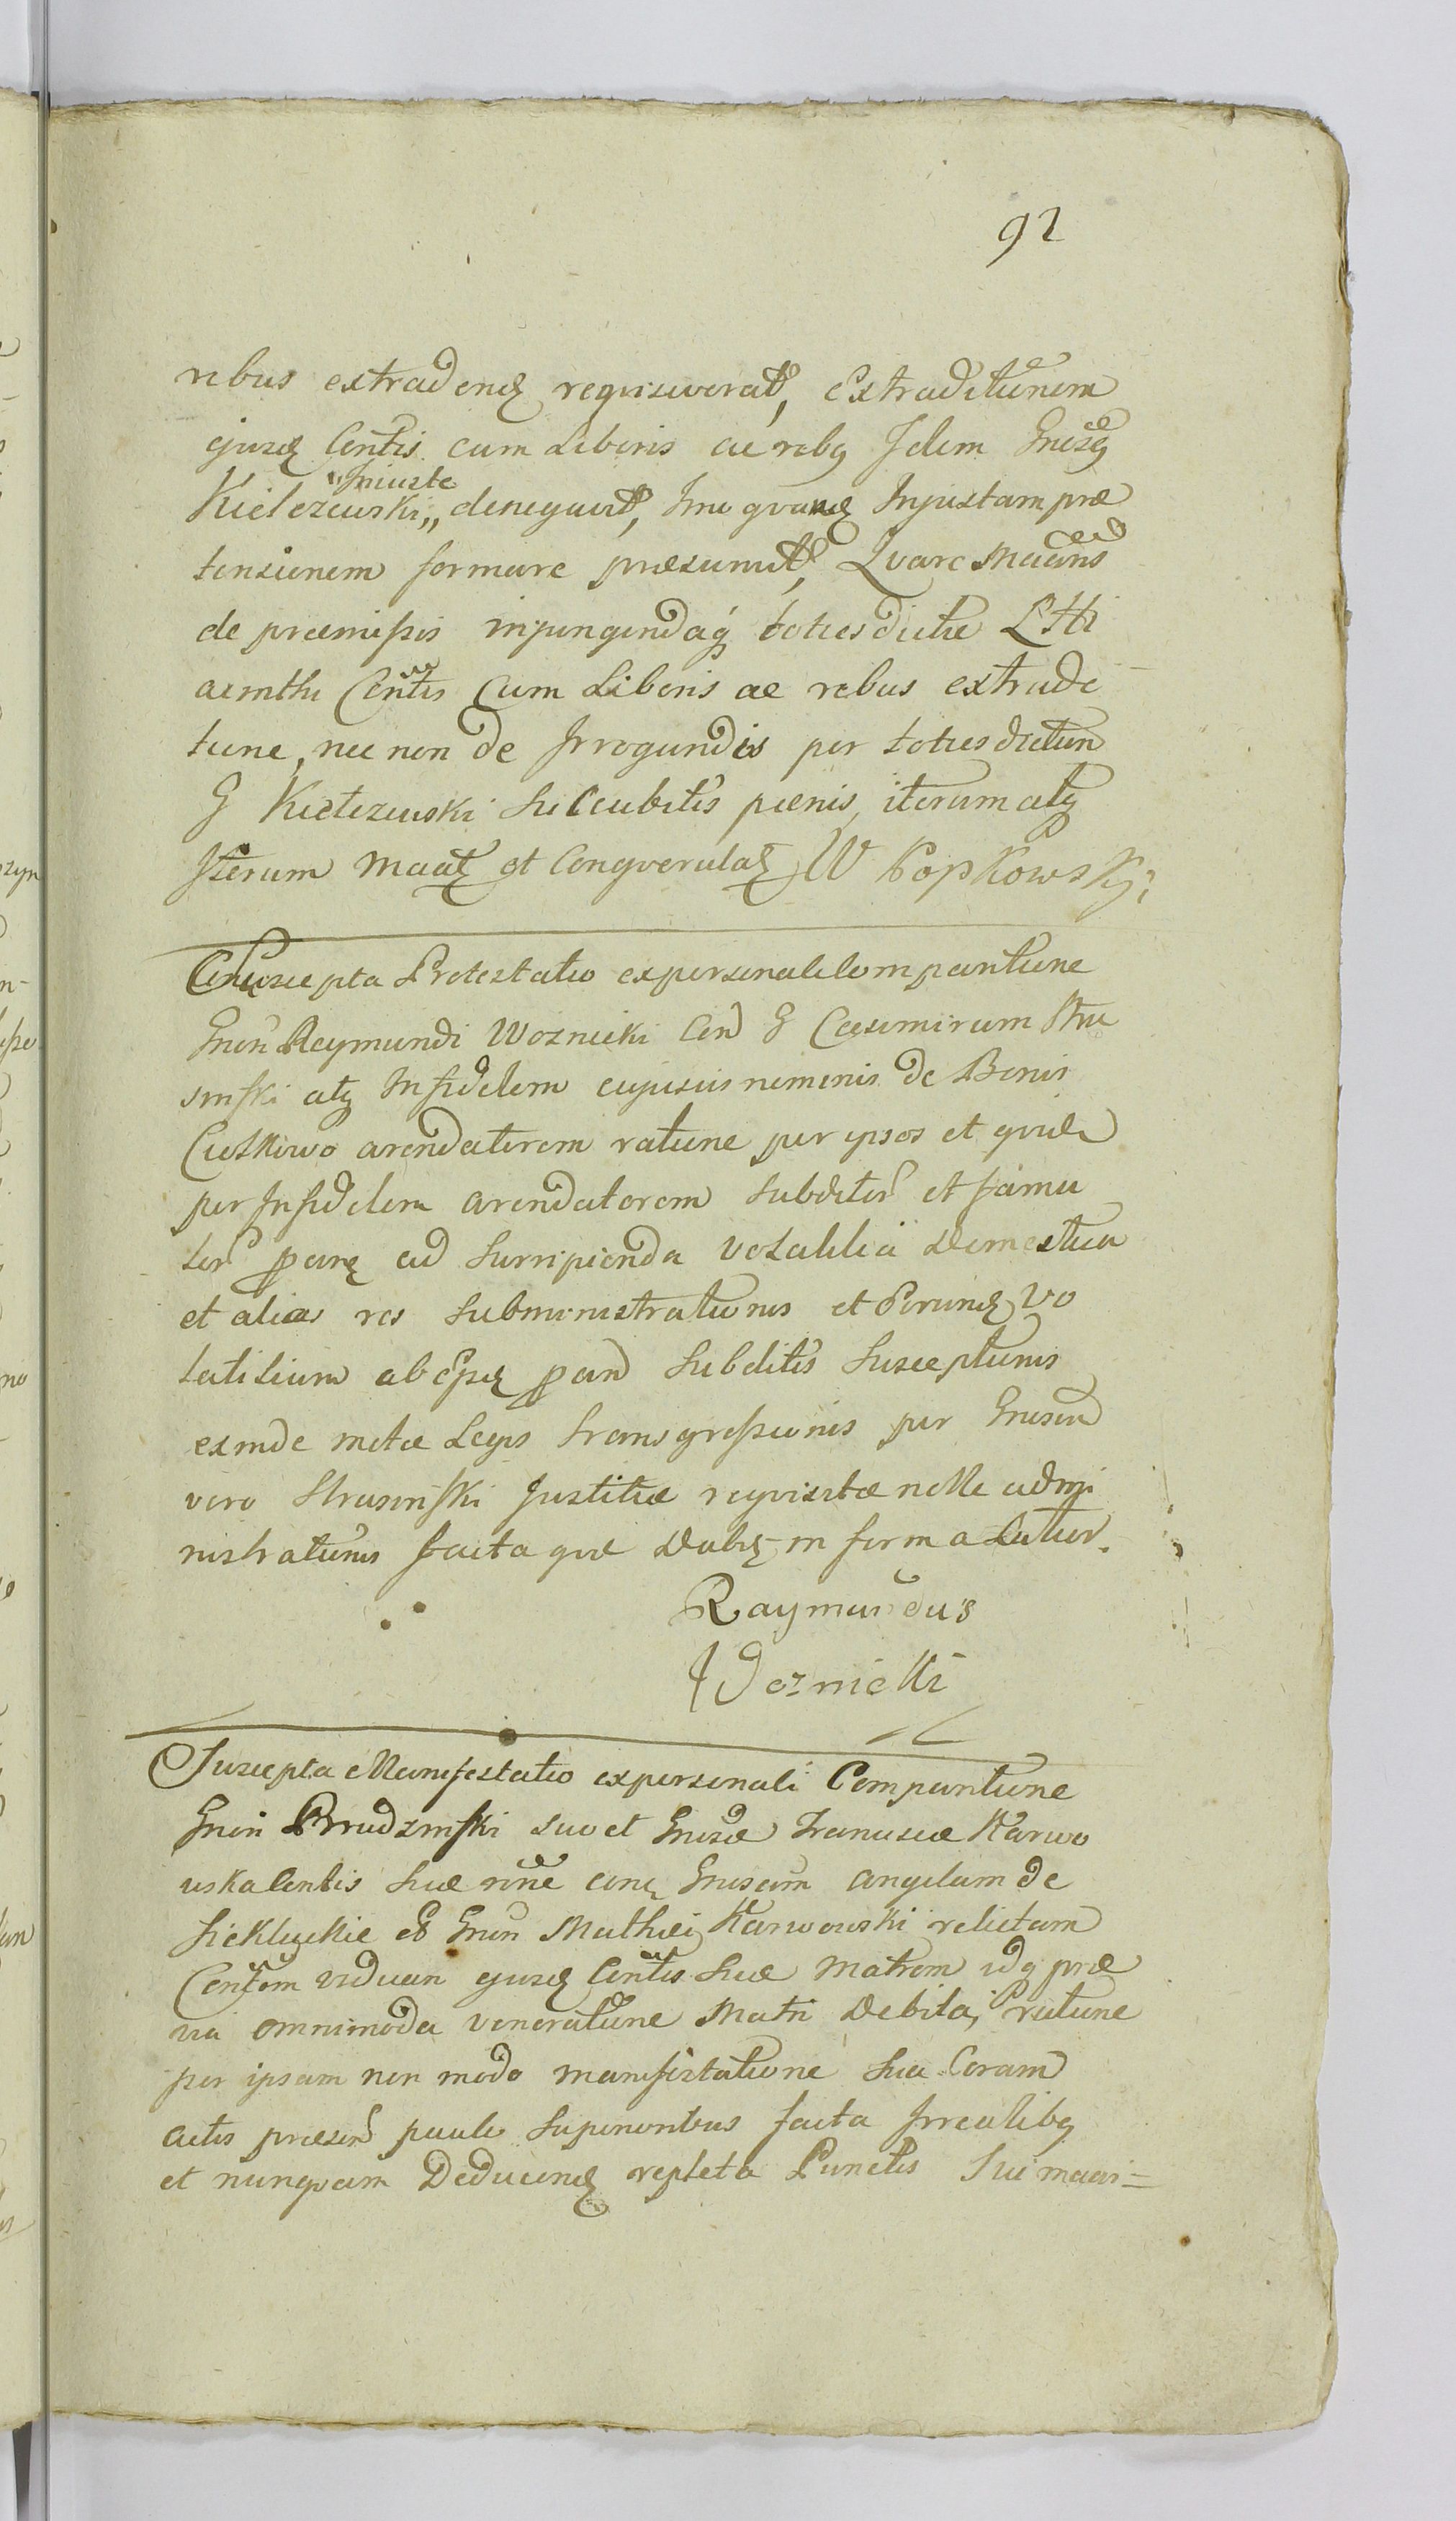 92
rebus extradend requisiverat, extraditionem
ejusd Contis cum Liberis ac rebq Idem Gnosq
Injuste
Kielczewski,, denegavit, Imo quand Injustam præ
tensionem formare præsumit, Quare Maans
de præmissis injungendaq toties dictæ Ltti
Contis Cum Liberis ac rebus extradi
tione, nec non de Irrogandis per toties dictum
G Kielczewski Succubitis pœnis, iterum atq
Iterum Maat et Conqverulat W Popkowski
Suscepta Protestatio ex personali Comparitione
Gnon Raymundi Woznicki Con G Casimirum Stru
sinski atq Infidelem cujusvis nominis de Bonis
Cutkowo arendatorem ratione per ipsos et quid
per Infidelem arendatorem Subditor et famu
lor ad Surripienda Volatilia Domestica
et alias res Subministrationis et Vo
latilium ab Subditis Susceptionis
exinde metæ Legis transgressionis per Gnosum
vero Strusinski Justitiæ reqvisitæ nolle admi
nistrationis facta qvæ Dabit in forma Latior.
Raymundus
Woznicki
Suscepta Manifestatio ex personali Comparitione
Gnon Prudzinski suo et Gnosæ Franciscæ Karwo
wska Contis Suæ nne Gnosam Angelam de
et Gnon Mathei Karwowski relictam
Contem viduam ejusd Contis Suæ Matrem idq præ
via omnimoda veneratione Matri Debita, ratione
per ipsam non modo manifestatione Sua Coram
actis præsen paulo Superioribus facta Irrealibq
et nunqvam Deducend repleta Punctis Sui mari=